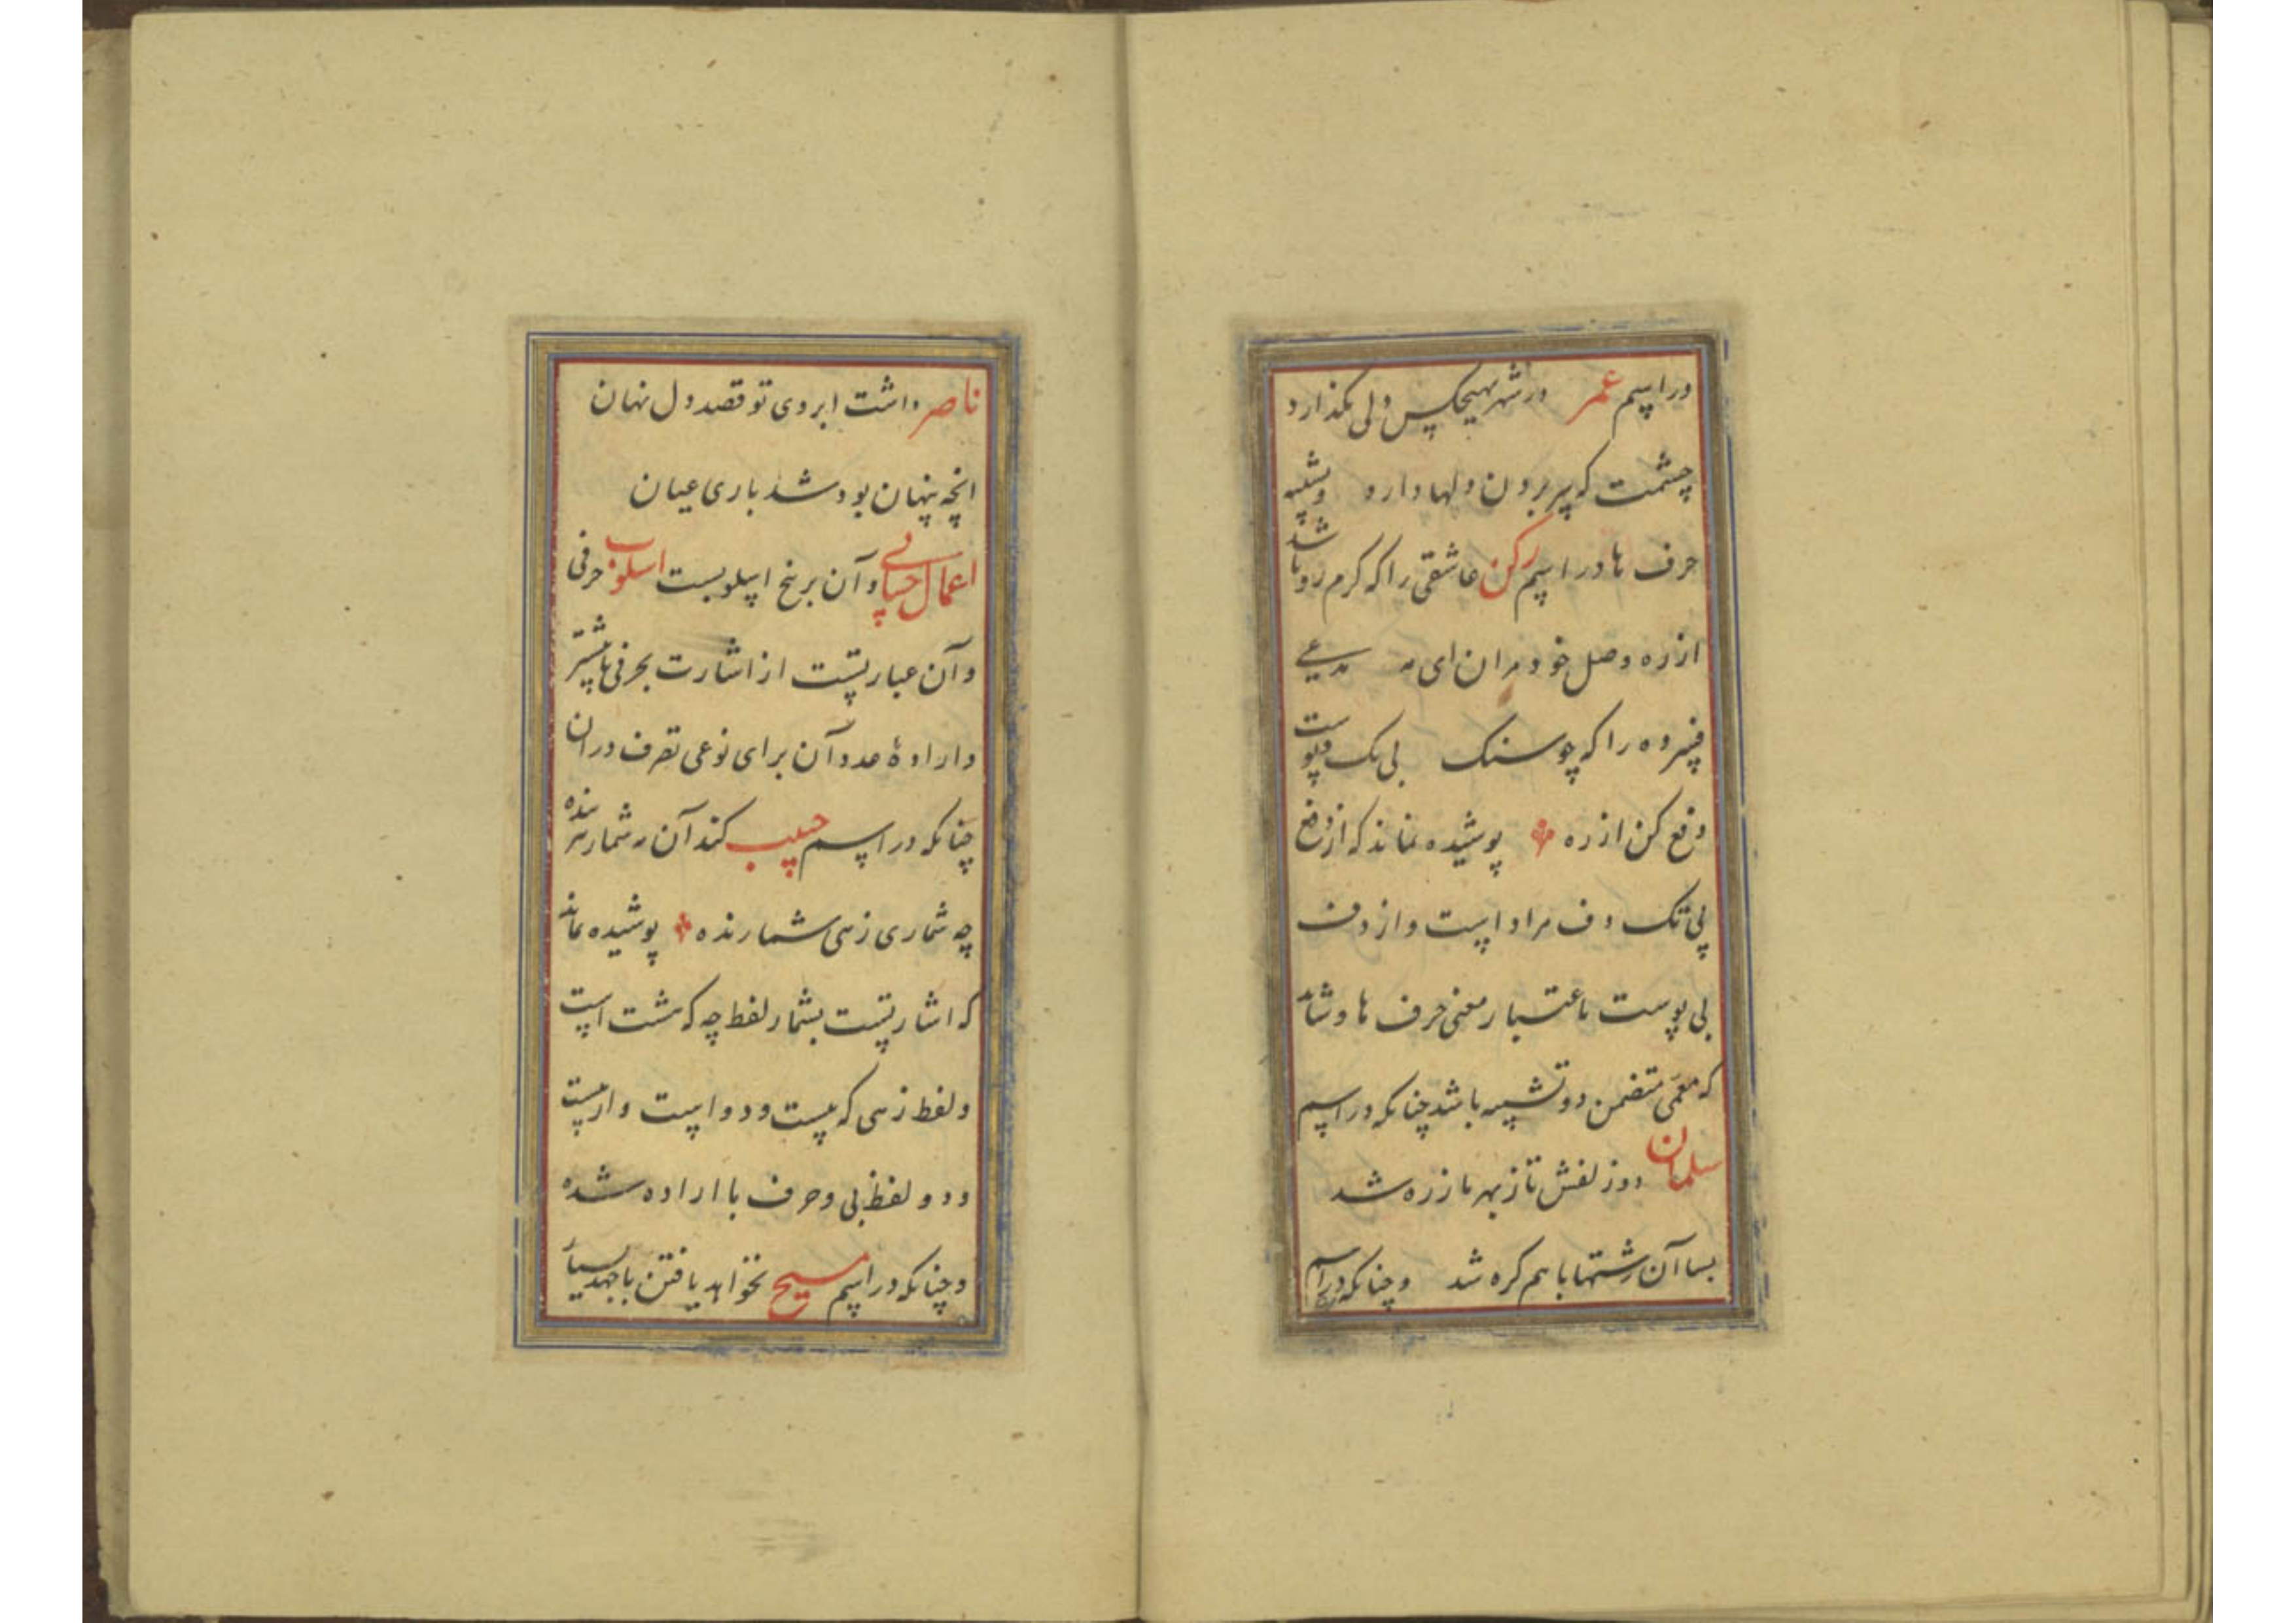 در اسم عمر در شهر هیچکس دلی نگذارد
چشمت که پی بردن دلها دارد و تشبیه
حرف ها در اسم رکن عاشقی را که کرم رو باشد
از ره وصل خود مران ای مه مدعی
فسرده را که چو سنک بی تک و پوست
دفع کن از ره پوشیده نماند که از دفع
بی تک دف مراد است و از دف
بی پوست باعتبار معنی حرف ها و شاید
که معمی متضمن دو تشبیه باشد چنانکه در اسم
سلمان دوز لفش تا ز بهر ما زره شد
بسا آن رشتها با هم کره شد و چنانکه در اسم
ناصر داشت ابروی تو قصد دل نهان
انچه پنهان بود شد باری عیان
اعمال حسابی و آن بر پنج اسلوبست اسلوب حرفی
و آن عبارتست از اشارت بحرفی یا بیشتر
و ارادهٔ عدد آن برای نوعی تصرف در ان
چنانکه در اسم حبیب کند آن مه شمار هر بنده
چه شماری زهی شمارنده پوشیده نماند
که اشارتست بشمار لفظ چه که هشت است
و لفظ زهی که بیست و دو است و از بیست
و دو لفظ بی و حرف با اراده شده
و چنانکه در اسم مسیح نخواهد یافتن با جهد بسیار